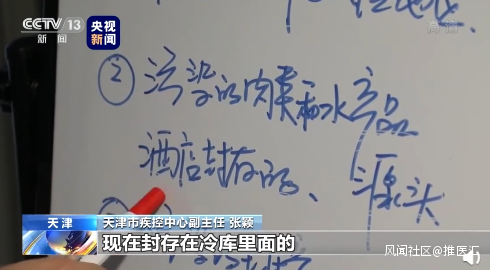 CCTV 13
新闻
央视
新闻
② 污染的肉类和水产品
酒店封存的、源头
天津
天津市疾控中心副主任 张颖
现在封存在冷库里面的
风闻社区@推医汇